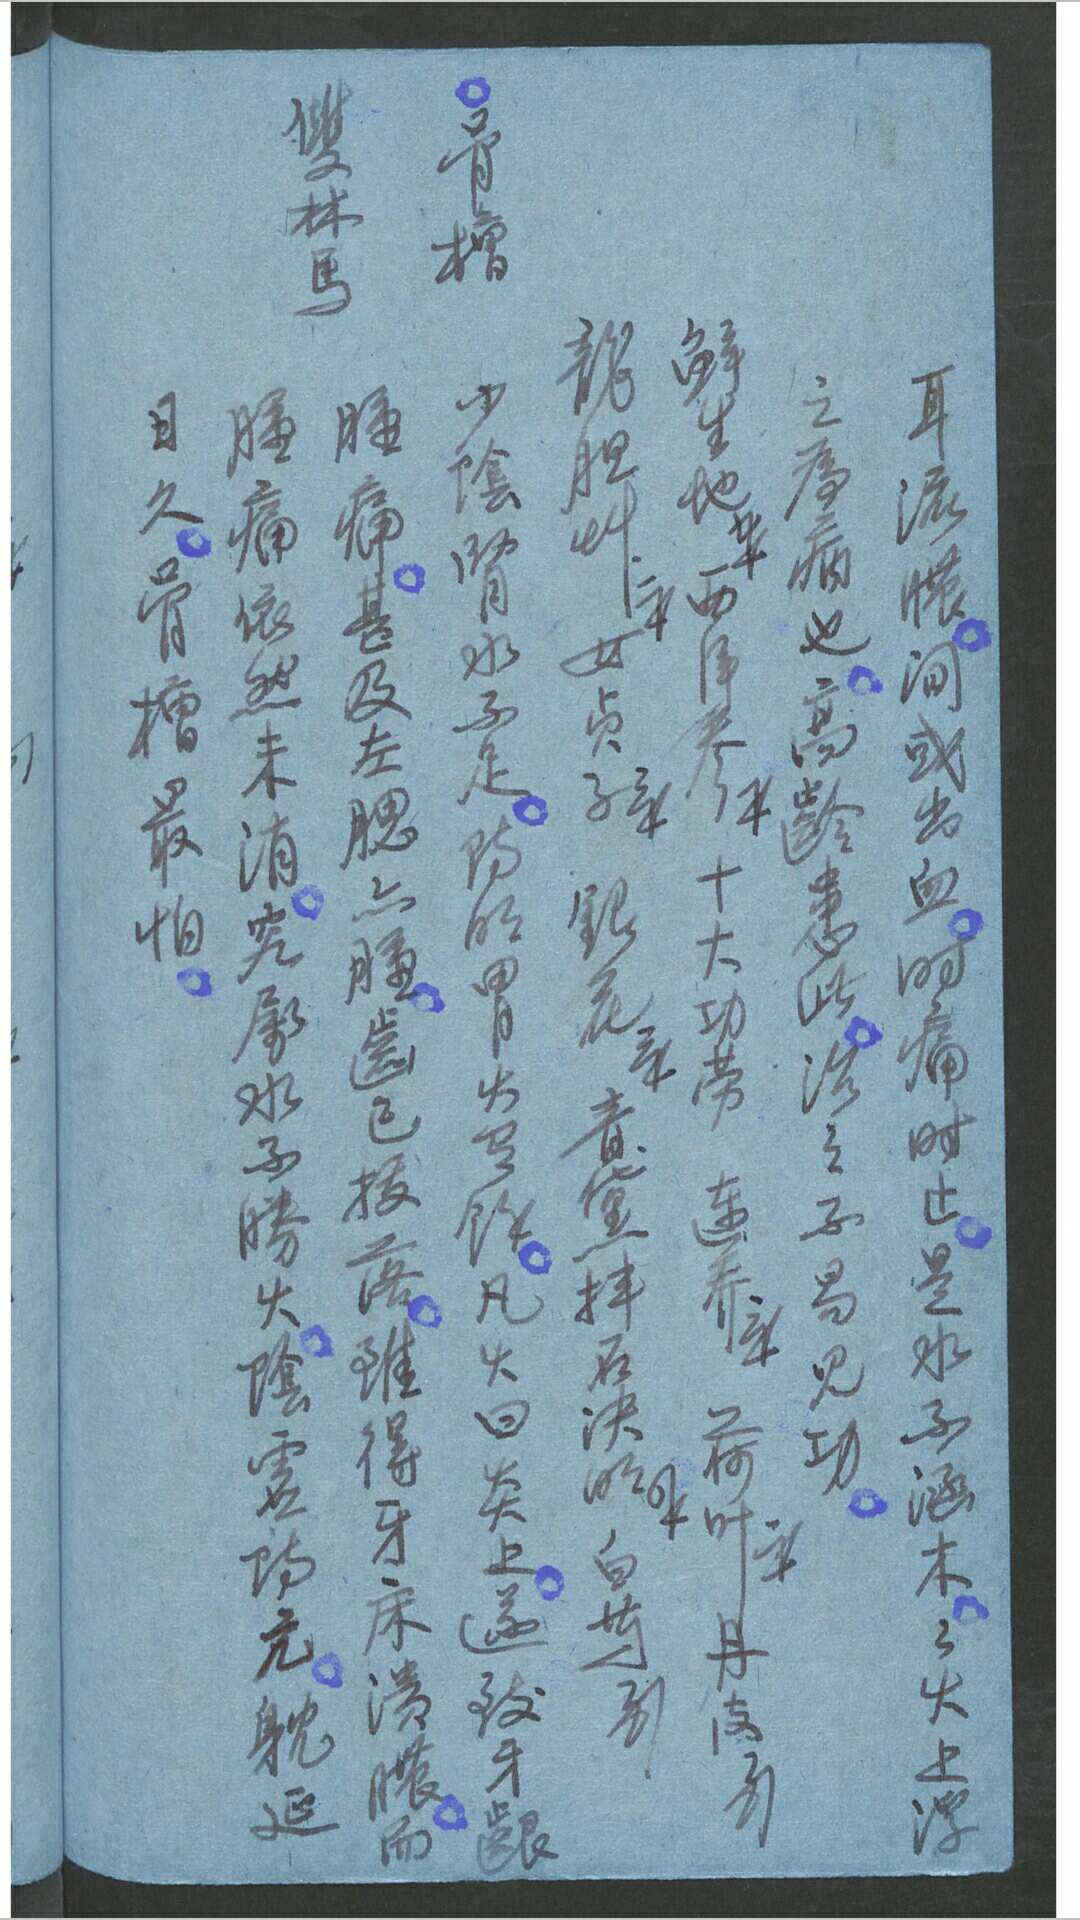 耳流膿間或出血时痛时止是水不涵木之火上浮
之為病也高齡患此治之不易見功
鮮生地 西洋參 十大功劳 連荞 荷叶 丹皮
龍胆艸 女貞子 銀花 青黛拌石決明 白芍
骨槽
少陰腎水不足陽明胃火有餘凡火曰炎上遂致牙齦
雙林馬
腫痛甚及左腮亦腫齒已拔落雖得牙床潰膿而
腫痛依然未消究屬水不勝火陰虛陽亢躭延
日久骨槽最怕